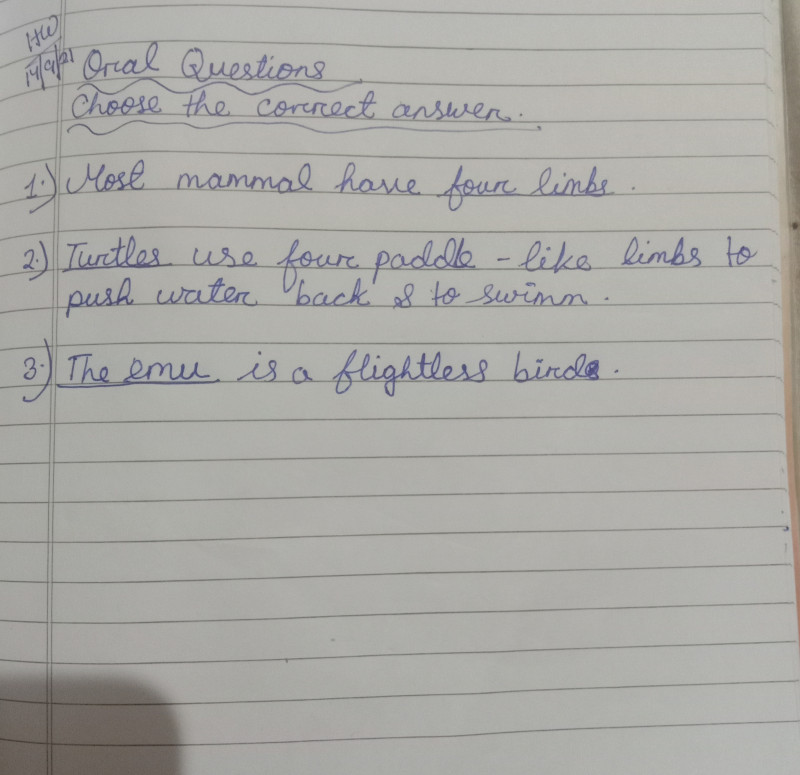 HW
14/9/21 Oral Questions
Choose the correct answer.
1.) Most mammal have four limbs.
2.) Turtles use four paddle-like limbs to
push water back & to swimm.
3.) The emu is a flightless bird.